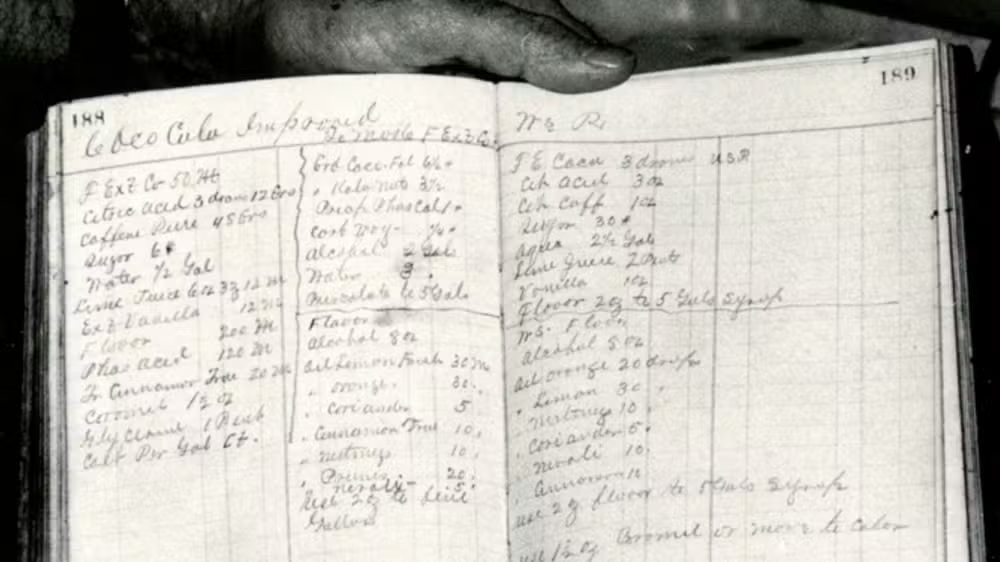 188
Coco Cola Improved
F Ext Co 50 M
Citric Acid 3 drams 12 Grs
Caffeine Pure 48 Grs
Sugar 6#
Water 1/2 Gal
Lime Juice 6 oz 3 12 M
Ext Vanilla 12 M
Flavor 200 M
Phos Acid 120 M
Tr Cinnamon True 20 M
Caramel 1 1/2 oz
Glycerine 1 Pint
Cost Per Gal Ct.
To F Ext Co.
Grd Coca
Kola nuts 3 1/2
alcohol 2 Gal
Water 3
Percolate to 5 Gals
Flavor
Alcohol 8 oz
Oil Lemon 30 M
" orange 30 "
" Coriander 5
" Cinnamon True 10 "
" nutmegs 10 "
" 20 "
neroli 5 "
Use 2 to
Gallons
189
F E Coca 3 drams U.S.P.
Cit Acid 3 oz
Cit Caff 1 oz
Sugar 30 #
Aqua 2 1/2 Gal
Lime Juice 2 Pints
Vanilla 1 oz
Flavor 2 to 5 Gals Syrup
Flavor
Alcohol 8 oz
Oil orange 20 drops
" Lemon 30 "
" nutmegs 10 "
" Coriander 5 "
" Neroli 10 "
" Cinnamon 10
use 2 flavor to 5 Gals Syrup
use 1 1/2 oz or more to Color